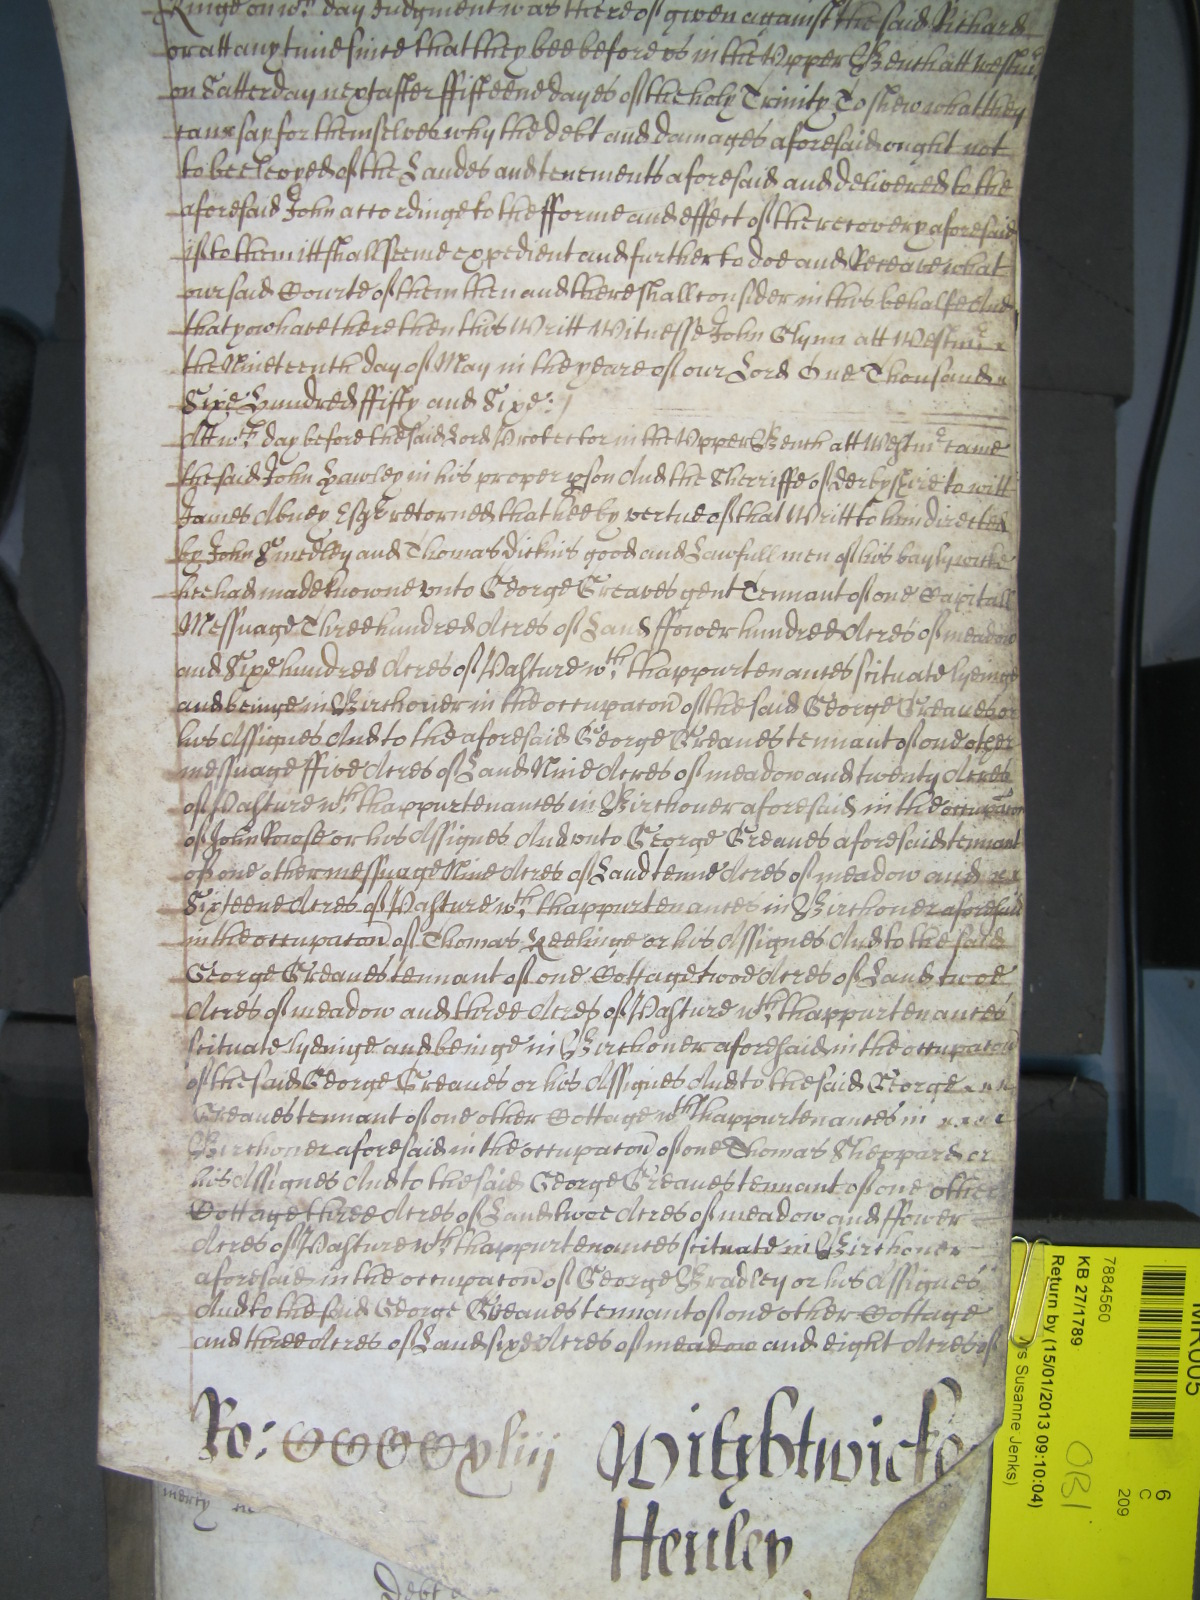 Kinge on wch day Judgment was thereof given against the said Richard
or att any time since that they bee before us in the Upper Bench att Westmr
on Satterday next after fifteene dayes of the holy Trinity To shew what they
cann say for themselves why the debt and damages aforesaid ought not
to bee levyed of the Landes and tenements aforesaid and delivered to the
aforesaid John accordinge to the fforme and effect of the recovery aforesaid
if to them itt shall seeme expedient and further to doe and Receave what
our said Courte of them then and there shall consider in this behalfe And
that yow have there then this Writt Wittnesse John Glynn att Westmr
the Nineteenth day of May in the yeare of our Lord One Thousand
Sixe Hundred ffifty and Sixe:
Att wch day before the said Lord Protector in the Upper Bench att Westmr came
the said John Hawley in his proper pson And the Sherriffe of Derbyshire to witt
James Abney Esqr retorned that hee by vertue of that Writt to him directed
by John Smedley and Thomas Dickins good and Lawfull men of his baylywicke
hee had made knowne unto George Greaves gent Tennant of one Capitall
Messuage Three hundred Acres of Land ffower hundred Acres of meadow
and Sixe hundred Acres of Pasture wth thappurtenances scituate lyeinge
and beinge in Birchover in the occupacon of the said George Greaves or
his Assignes And to the aforesaid George Greaves tennant of one other
messuage ffive Acres of Land Nine Acres of meadow and twenty Acres
of Pasture wth thappurtenances in Birchover aforesaid in the occupacon
of John Rowse or his Assignes And unto George Greaves aforesaid tennant
of one other messuage Nine Acres of Land tenne Acres of meadow and
Sixteene Acres of Pasture wth thappurtenances in Birchover aforesaid
in the occupacon of Thomas Keelinge or his Assignes And to the said
George Greaves tennant of one Cottage twoe Acres of Land twoe
Acres of meadow and three Acres of Pasture wth thappurtenances
scituate lyeinge and beinge in Birchover aforesaid in the occupacon
of the said George Greaves or his Assignes And to the said George
Greaves tennant of one other Cottage wth thappurtenances in
Birchover aforesaid in the occupacon of one Thomas Sheppard or
his Assignes And to the said George Greaves tennant of one other
Cottage three Acres of Land twoe Acres of meadow and ffower
Acres of Pasture wth thappurtenances scituate in Birchover
aforesaid in the occupacon of George Bradley or his Assignes
And to the said George Greaves tennant of one other Cottage
and three Acres of Land sixe Acres of meadow and eight Acres of
Ro:
Wightwicke
Henley
Debt
7884560
KB 27/1789
Return by (15/01/2013 09:10:04)
Susanne Jenks)
6
C
209